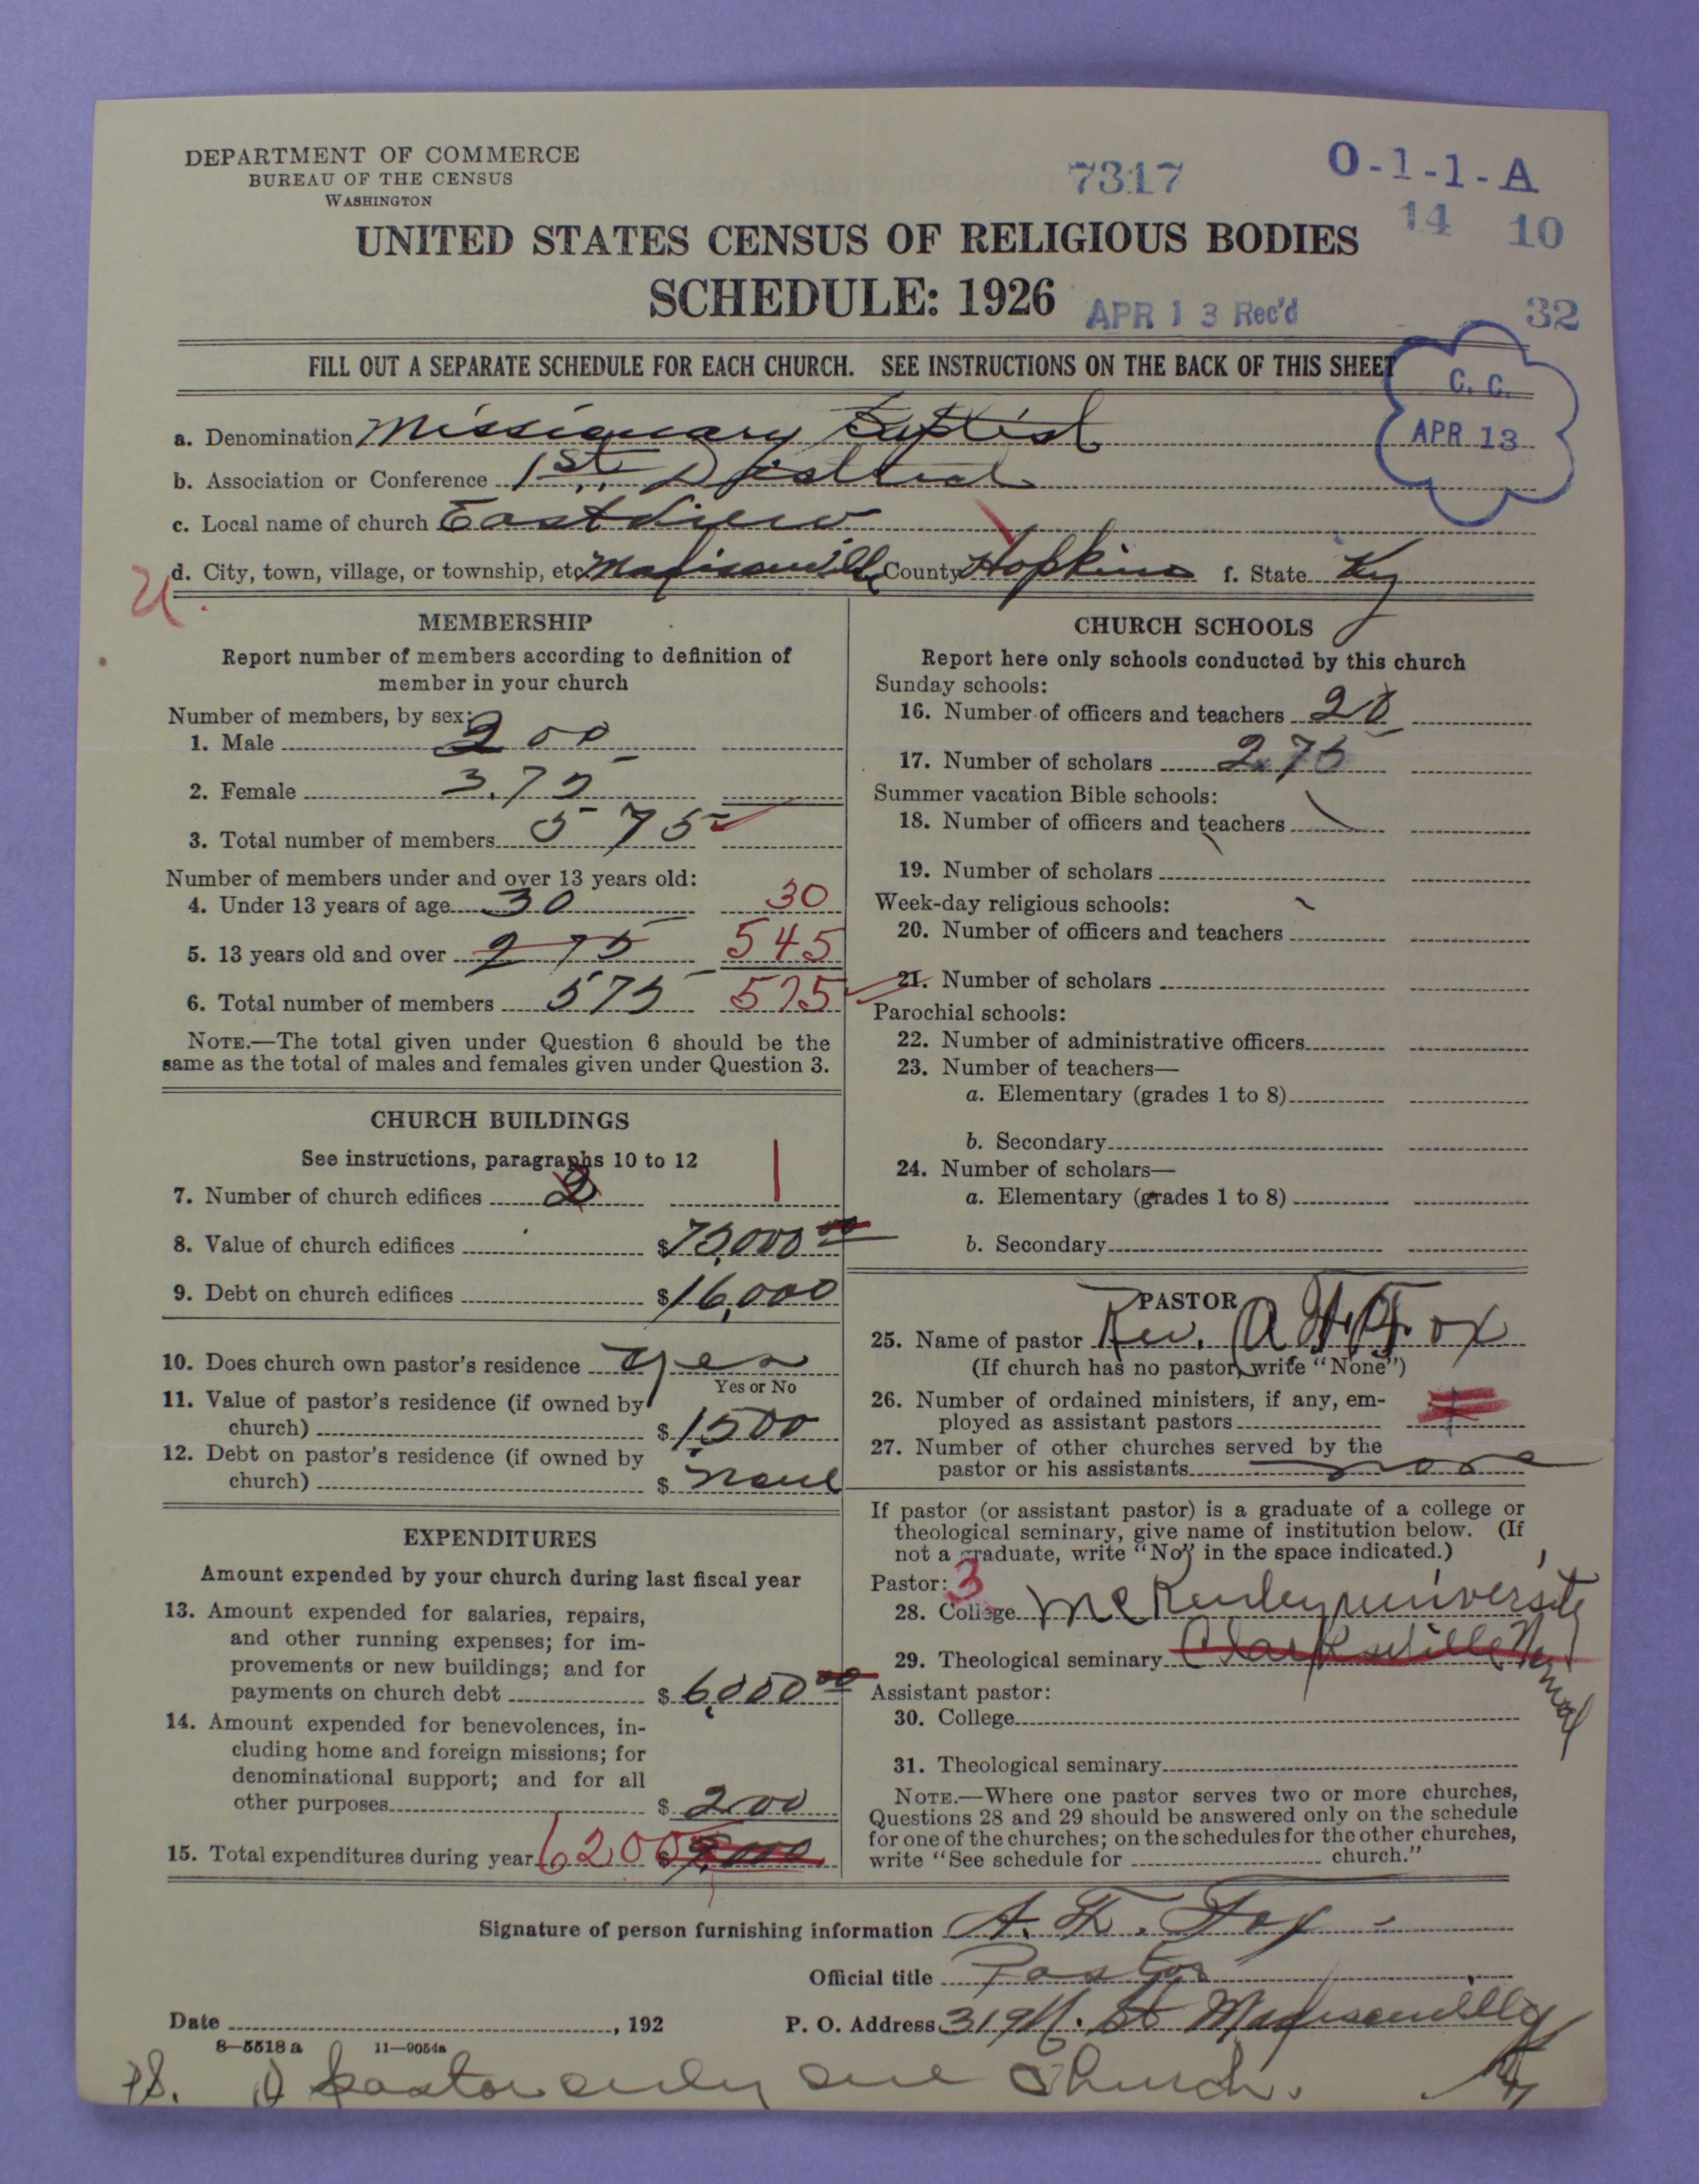 DEPARTMENT OF COMMERCE
BUREAU OF THE CENSUS
WASHINGTON
7317
O-1-1-A
14 10
UNITED STATES CENSUS OF RELIGIOUS BODIES
SCHEDULE: 1926
APR 13 Rec'd
32
FILL OUT A SEPARATE SCHEDULE FOR EACH CHURCH. SEE INSTRUCTIONS ON THE BACK OF THIS SHEET
C. C.
APR 13
a. Denomination Missionary Baptist
b. Association or Conference 1st District
c. Local name of church Eastview
d. City, town, village, or township, etc Madisonville County Hopkins f. State Ky
U.
MEMBERSHIP
Report number of members according to definition of
member in your church
Number of members, by sex:
1. Male 200
2. Female 375
3. Total number of members 575
Number of members under and over 13 years old:
4. Under 13 years of age 30 30
5. 13 years old and over 275 545
6. Total number of members 575 575
NOTE.—The total given under Question 6 should be the
same as the total of males and females given under Question 3.
CHURCH BUILDINGS
See instructions, paragraphs 10 to 12
7. Number of church edifices 2 1
8. Value of church edifices $75,000 00
9. Debt on church edifices $16,000
10. Does church own pastor's residence yes
Yes or No
11. Value of pastor's residence (if owned by
church) $1,500
12. Debt on pastor's residence (if owned by
church) $ none
EXPENDITURES
Amount expended by your church during last fiscal year
13. Amount expended for salaries, repairs,
and other running expenses; for im-
provements or new buildings; and for
payments on church debt $6,000 00
14. Amount expended for benevolences, in-
cluding home and foreign missions; for
denominational support; and for all
other purposes $ 200
15. Total expenditures during year 6200 $
CHURCH SCHOOLS
Report here only schools conducted by this church
Sunday schools:
16. Number of officers and teachers
17. Number of scholars 275
Summer vacation Bible schools:
18. Number of officers and teachers
19. Number of scholars
Week-day religious schools:
20. Number of officers and teachers
21. Number of scholars
Parochial schools:
22. Number of administrative officers
23. Number of teachers—
a. Elementary (grades 1 to 8)
b. Secondary
24. Number of scholars—
a. Elementary (grades 1 to 8)
b. Secondary
PASTOR
25. Name of pastor Rev. A. F. Fox
(If church has no pastor, write "None")
26. Number of ordained ministers, if any, em-
ployed as assistant pastors
27. Number of other churches served by the
pastor or his assistants none
If pastor (or assistant pastor) is a graduate of a college or
theological seminary, give name of institution below. (If
not a graduate, write "No" in the space indicated.)
Pastor: 3
28. College McKenley university
29. Theological seminary Clarksville Normal
Assistant pastor:
30. College
31. Theological seminary
NOTE.—Where one pastor serves two or more churches,
Questions 28 and 29 should be answered only on the schedule
for one of the churches; on the schedules for the other churches,
write "See schedule for church."
Signature of person furnishing information A. F. Fox
Official title Pastor
Date , 192
P. O. Address 319 N. St Madisonville
Ky
8—5518a 11—9054a
PS. I pastor only one Church.